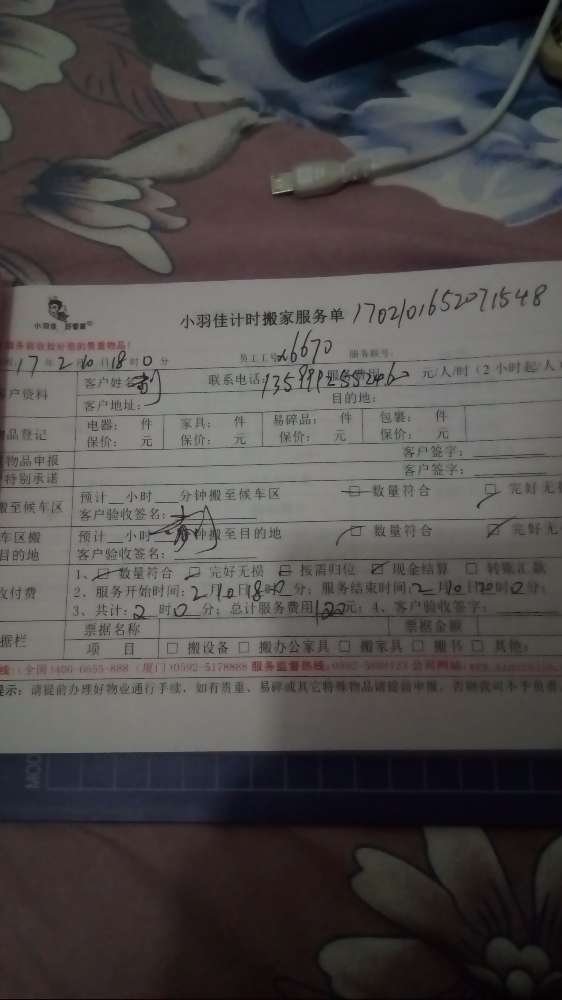 小羽佳 好管家
小羽佳计时搬家服务单 1702101652071548
服务验收按好您的贵重物品!
17年2月10日18时0分 员工工号 服务账号:
户资料 客户姓名: 联系电话: 元/人/时(2小时起/人
客户地址: 目的地:
品登记 电器: 件 家具: 件 易碎品: 件 包裹: 件
保价: 元 保价: 元 保价: 元 保价: 元
物品申报 客户签字:
特别承诺 客户签字:
搬至候车区 预计__小时___分钟搬至候车区 数量符合 完好无
客户验收签名:
车区搬 预计__小时 分钟搬至目的地 数量符合 完好无
目的地 客户验收签名:
收付费 1、 数量符合 完好无损 按需归位 现金结算 转账汇款
2、服务开始时间:2月10日18时0分;服务结束时间:2月10日20时0分;
3、共计:2时0分;总计服务费用120元;4、客户验收签字:
据栏 票据名称 票据金额
项 目 搬设备 搬办公家具 搬家具 搬书 其他:
线:(全国)400-6655-888 (厦门)0592-5178888 服务监督热线: 公司网站:
提示:请提前办理好物业通行手续,如有贵重、易碎或其它特殊物品请提前申报,否则我司不予负责